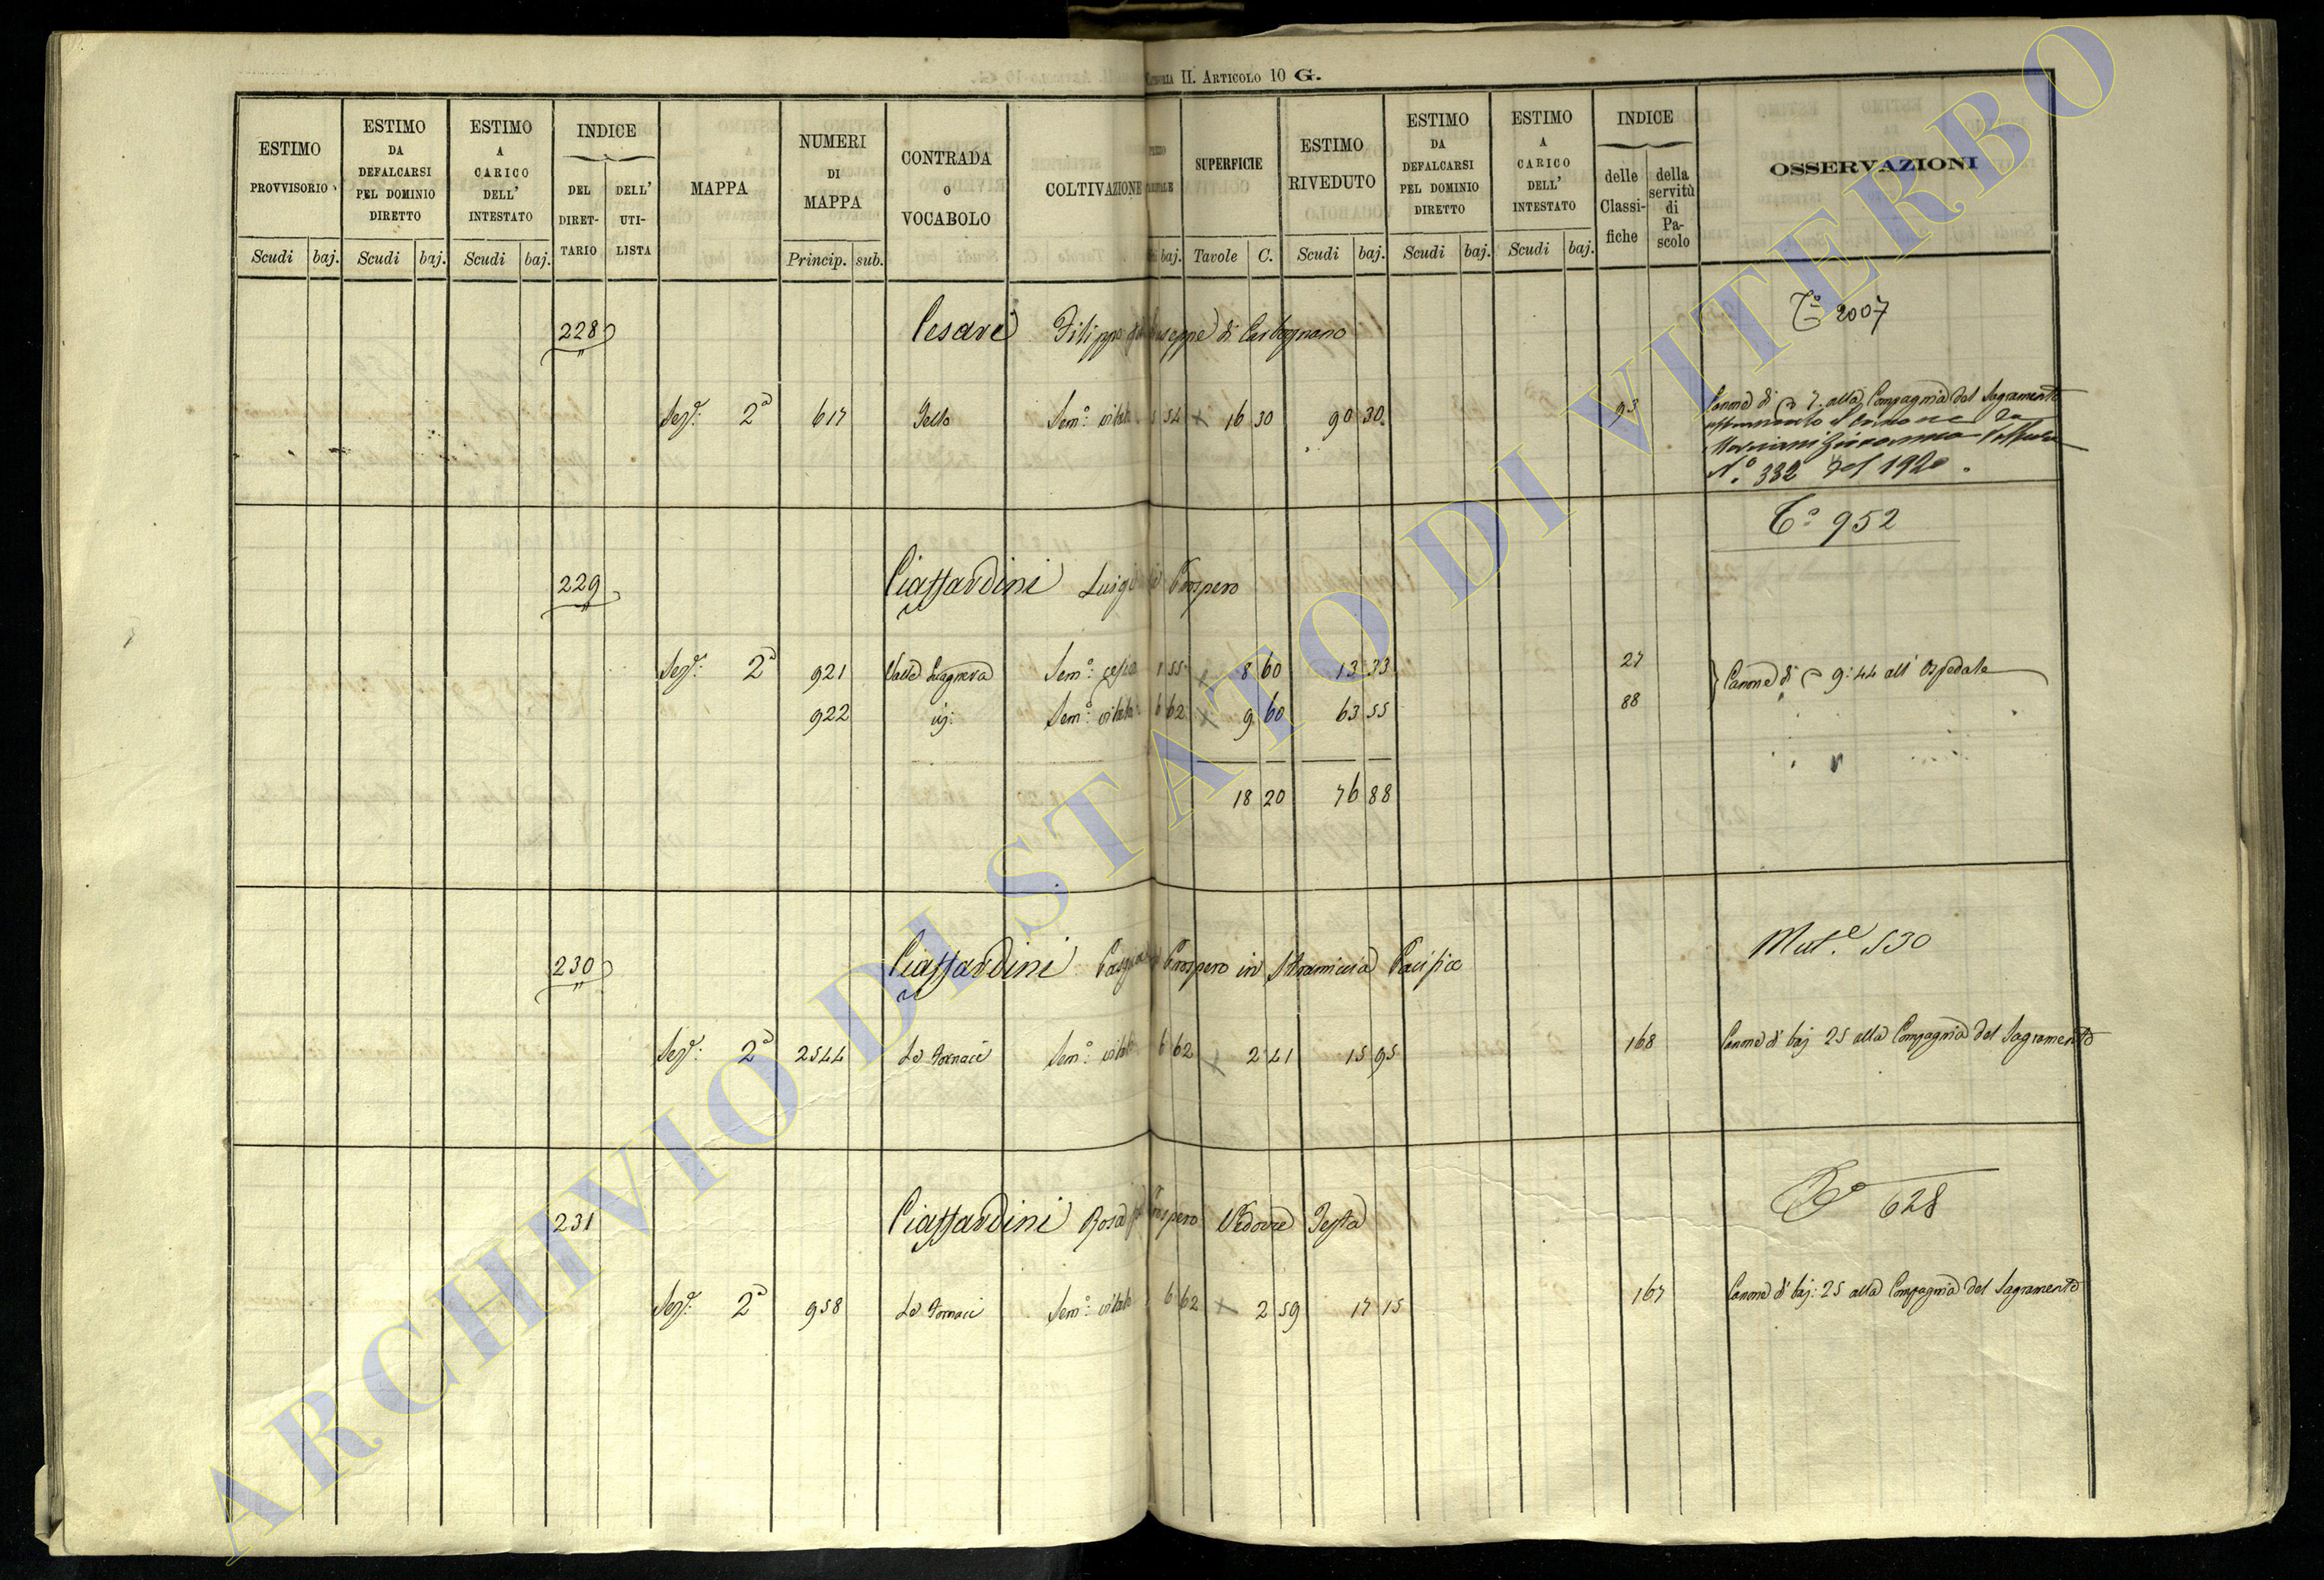 II. ARTICOLO 10 G.
ESTIMO PROVVISORIO
ESTIMO DA DEFALCARSI PEL DOMINIO DIRETTO
ESTIMO A CARICO DELL' INTESTATO
INDICE
DEL DIRET-TARIO
DELL' UTI-LISTA
MAPPA
NUMERI DI MAPPA
CONTRADA O VOCABOLO
COLTIVAZIONE
SUPERFICIE
ESTIMO RIVEDUTO
ESTIMO DA DEFALCARSI PEL DOMINIO DIRETTO
ESTIMO A CARICO DELL' INTESTATO
INDICE
delle Classi-fiche
della servitù di Pa-scolo
OSSERVAZIONI
Scudi baj. Scudi baj. Scudi baj. Princip. sub. baj. Tavole C. Scudi baj. Scudi baj. Scudi baj.
228 Cesare Filippo di Carbognano 2007
2ª 617 Sem.º 54 16 30 90 30 93 Canone di 7. alla Compagnia del Sagramento
N.º 332 del 1920.
952
229 Ciaffardini Luigi Prospero
2ª 921 Valle Sem.º 1 55 8 60 13 33 27 Canone di 9:44 all' Ospedale
922 Sem.º 6 62 9 60 63 55 88
18 20 76 88
230 Ciaffardini Prospero in Pacifico Mut.e 530
2ª 2544 Le Fornaci Sem.º 6 62 2 41 15 95 168 Canone di baj 25 alla Compagnia del Sagramento
231 Ciaffardini Rosa Prospero Vedova Testa 628
2ª 958 Le Fornaci Sem.º 6 62 2 59 17 15 167 Canone di baj: 25 alla Compagnia del Sagramento
ARCHIVIO DI STATO DI VITERBO